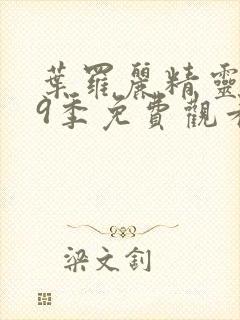 葉羅麗精靈
9季免費觀看
梁文釗